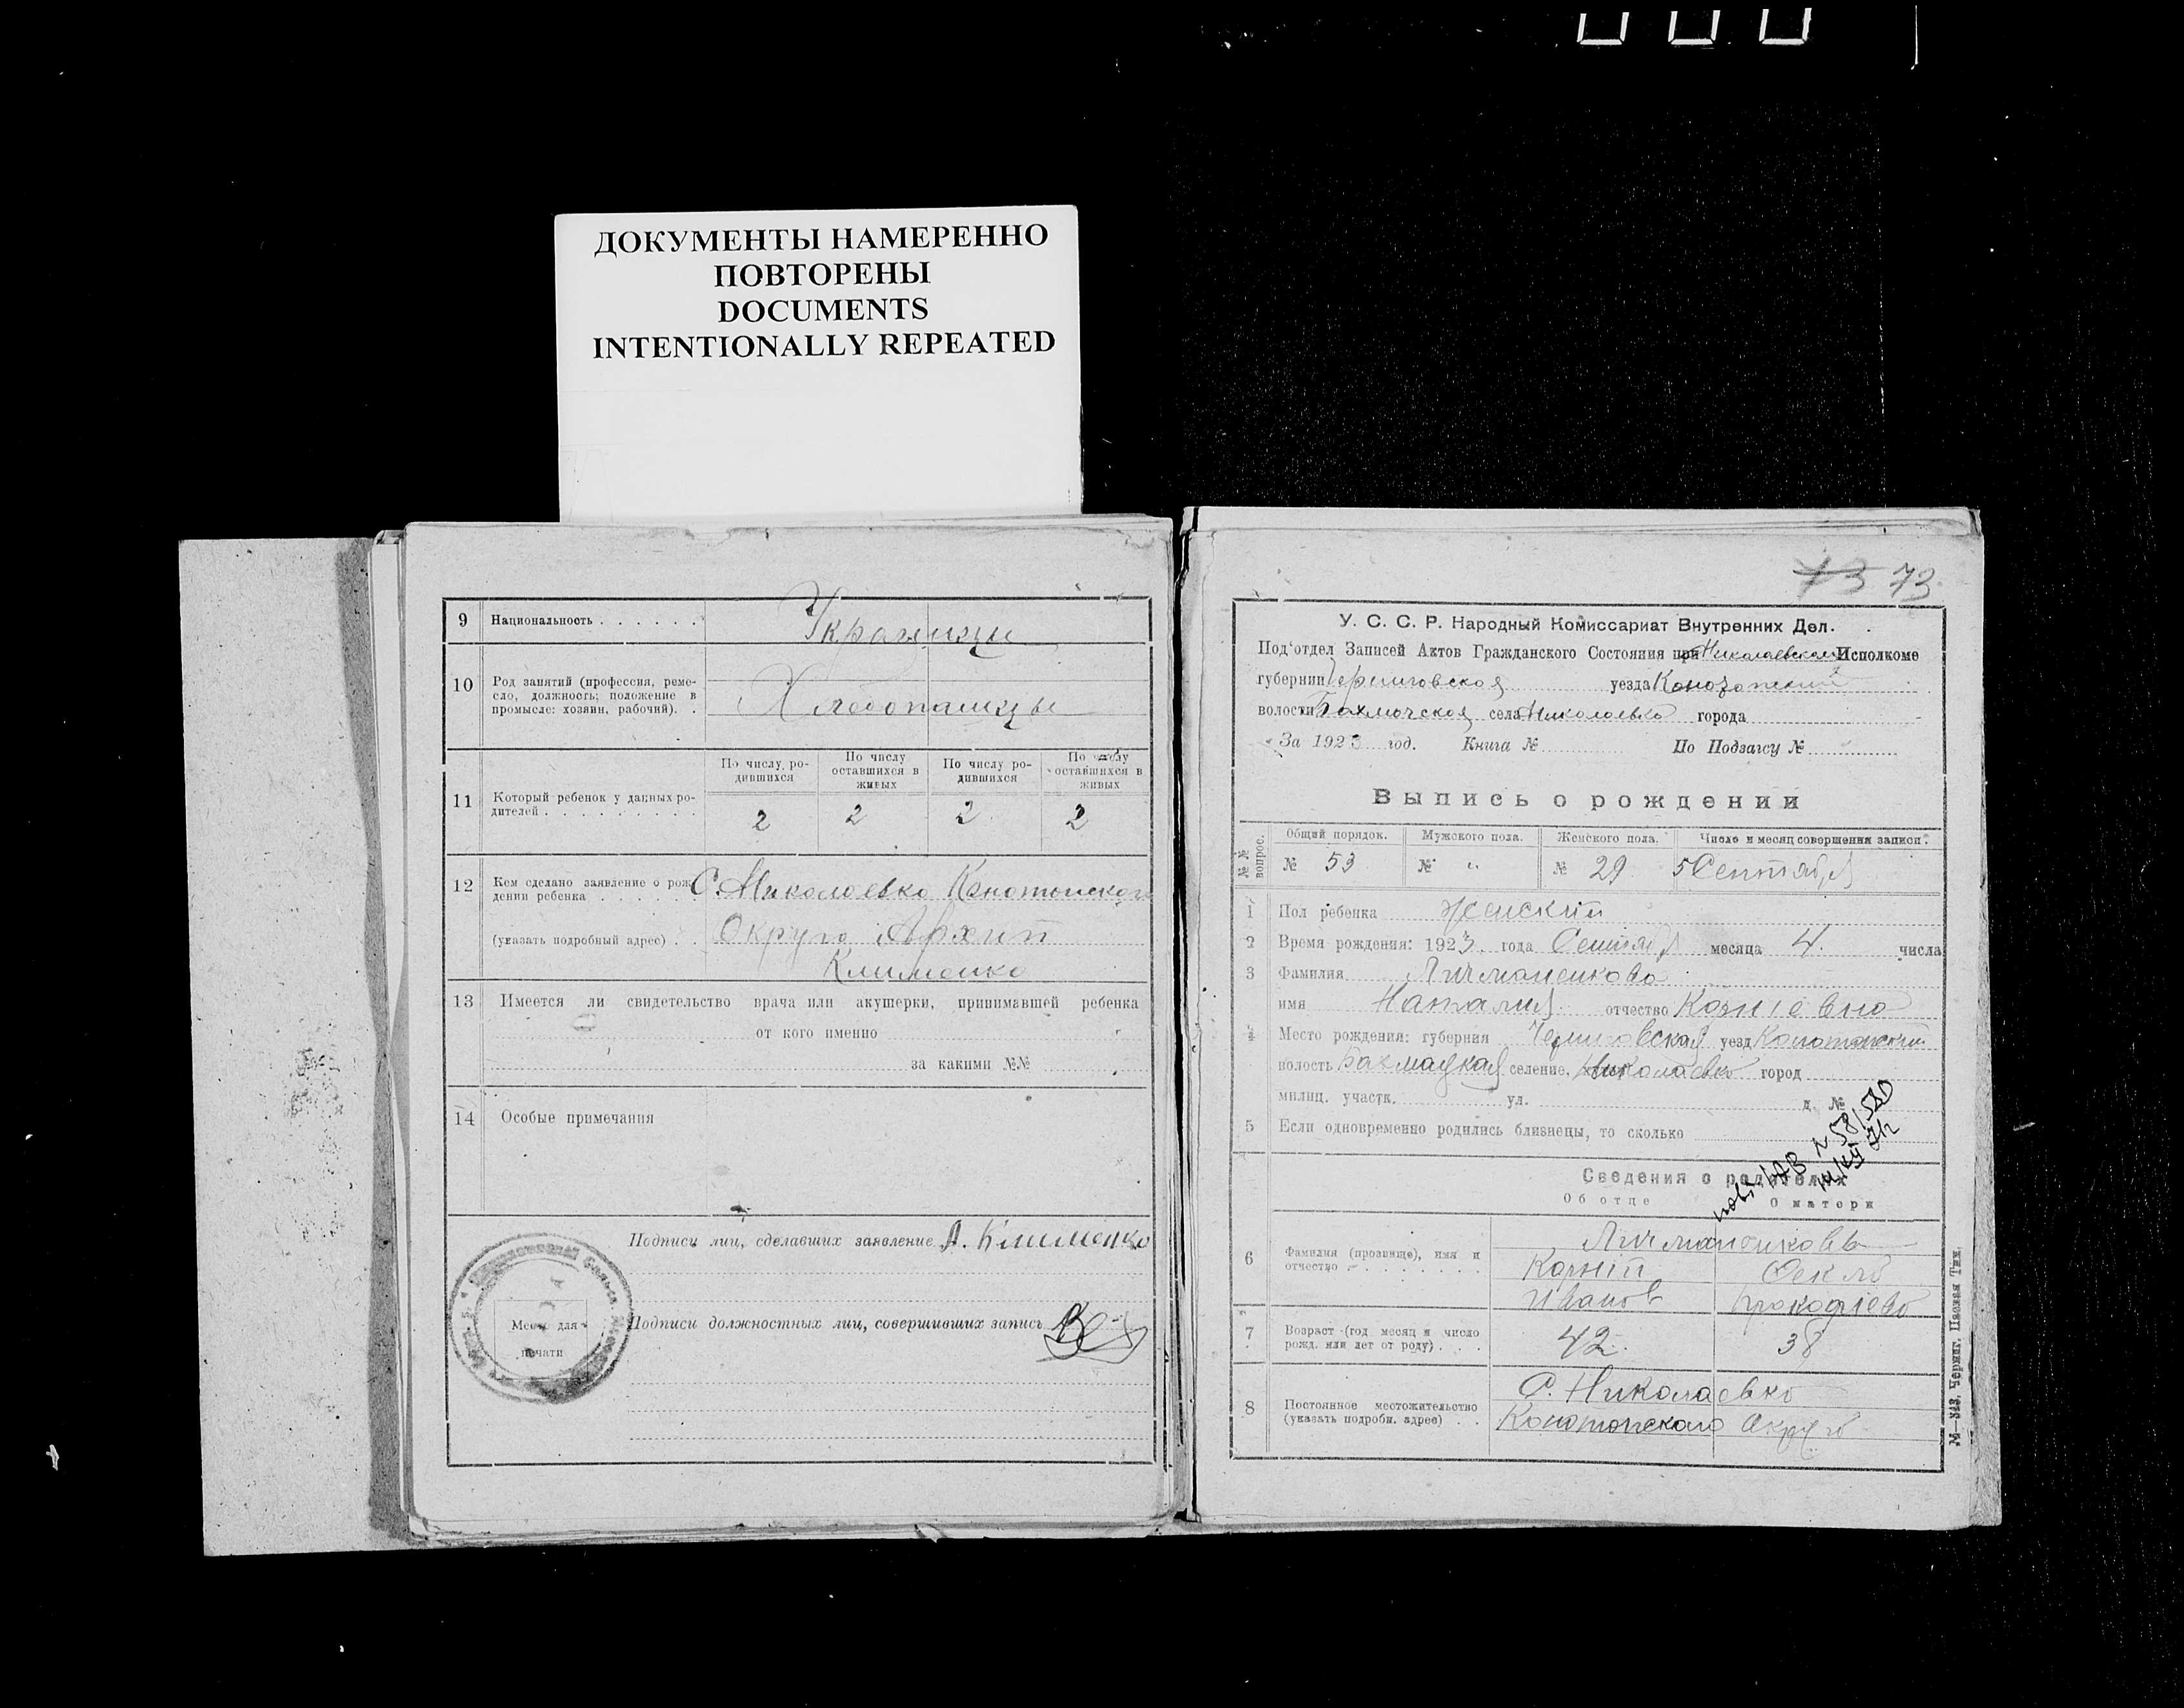 ДОКУМЕНТЫ НАМЕРЕННО
ПОВТОРЕНЫ
DOCUMENTS
INTENTIONALLY REPEATED
9 Национальность Украинцы
10 Род занятий (профессия, реме-
сло, должность; положение в
промысле: хозяин, рабочий). Хлебопашцы
По числу ро-
дившихся
По числу
оставшихся в
живых
По числу ро-
дившихся
По числу
оставшихся в
живых
11 Который ребенок у данных ро-
дителей 2 2 2 2
12 Кем сделано заявление о рож-
дении ребенка С. Николаевка Конотопского
(указать подробный адрес) Округа Архип
Клименко
13 Имеется ли свидетельство врача или акушерки, принимавшей ребенка
от кого именно
за какими №№
14 Особые примечания
Подписи лиц, сделавших заявление А. Клименко
Подписи должностных лиц, совершивших запись
Место для
печати
73 73
У. С. С. Р. Народный Комиссариат Внутренних Дел.
Под'отдел Записей Актов Гражданского Состояния при Николаевском Исполкоме
губернии Черниговской уезда Конотопский
волости Бахмачской села Николаевка города
За 1923 год. Книга № По Подзагсу №
Выпись о рождении
№№ вопрос.
Общий порядок. Мужского пола. Женского пола. Число и месяц совершения записи.
№ 53 № " № 29 5 Сентября
1 Пол ребенка женский
2 Время рождения: 1923 года Сентября месяца 4. числа
3 Фамилия Личманенкова
имя Наталия отчество Корніевна
4 Место рождения: губерния Черниговская уезд Конотопский
волость Бахмацкая селение, Николаевка город
милиц. участк. ул. д. №
5 Если одновременно родились близнецы, то сколько
Сведения о родителях
Об отце О матери
6 Фамилия (прозвище), имя и
отчество Личманенковы
Корній Фекла
Иванов Прокофіева
7 Возраст (год месяц и число
рожд. или лет от роду) 42. 38
8 Постоянное местожительство
(указать подробн. адрес) С. Николаевка
Конотопского Округа